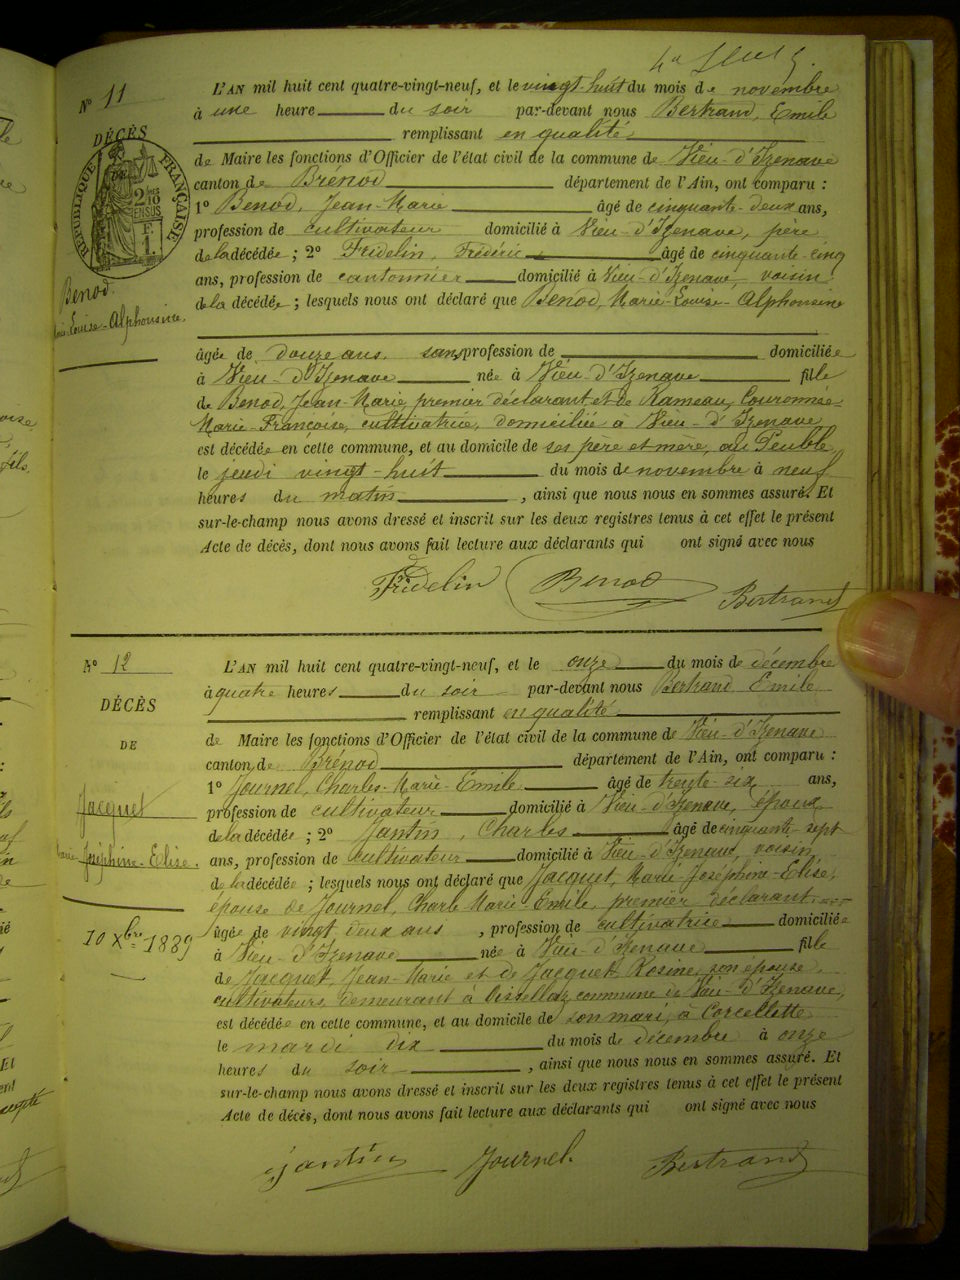 4e feuillet.
N° 11
DÉCÈS
DE
RÉPUBLIQUE FRANÇAISE
2/10 EN SUS
F. 1.
Benod.
Marie-Louise-Alphonsine.
L'AN mil huit cent quatre-vingt-neuf, et le vingt-huit du mois de novembre
à une heure du soir par-devant nous Bertrand, Emile
remplissant en qualité
de Maire les fonctions d'Officier de l'état civil de la commune de Vieu-d'Izenave
canton de Brénod département de l'Ain, ont comparu :
1° Benod, Jean-Marie âgé de cinquante-deux ans,
profession de cultivateur domicilié à Vieu-d'Izenave, père
de la décédée ; 2° Fridelin, Frédéric âgé de cinquante-cinq
ans, profession de cantonnier domicilié à Vieu-d'Izenave, voisin
de la décédée ; lesquels nous ont déclaré que Benod, Marie-Louise-Alphonsine
âgée de douze ans, sans profession de domiciliée
à Vieu-d'Izenave née à Vieu-d'Izenave fille
de Benod, Jean-Marie premier déclarant et de Rameau, Couronnée-
Marie-Françoise, cultivatrice, domiciliée à Vieu-d'Izenave
est décédée en cette commune, et au domicile de ses père et mère, au Peuble,
le jeudi vingt-huit du mois de novembre à neuf
heures du matin, ainsi que nous nous en sommes assuré. Et
sur-le-champ nous avons dressé et inscrit sur les deux registres tenus à cet effet le présent
Acte de décès, dont nous avons fait lecture aux déclarants qui ont signé avec nous
Fridelin Benod Bertrand
N° 12
DÉCÈS
DE
Jacquet
Marie-Joséphine-Elise.
10 Xbre 1889
L'AN mil huit cent quatre-vingt-neuf, et le onze du mois de décembre
à quatre heures du soir par-devant nous Bertrand Emile
remplissant en qualité
de Maire les fonctions d'Officier de l'état civil de la commune de Vieu-d'Izenave
canton de Brénod département de l'Ain, ont comparu :
1° Journel, Charles-Marie-Emile âgé de trente-six ans,
profession de cultivateur domicilié à Vieu-d'Izenave, époux
de la décédée ; 2° Jantin, Charles âgé de cinquante-sept
ans, profession de cultivateur domicilié à Vieu-d'Izenave, voisin
de la décédée ; lesquels nous ont déclaré que Jacquet, Marie-Joséphine-Elise,
épouse de Journel, Charle Marie-Emile, premier déclarant.
âgée de vingt deux ans, profession de cultivatrice domiciliée
à Vieu-d'Izenave née à Vieu-d'Izenave fille
de Jacquet, Jean-Marie et de Jacquet Rosine, son épouse,
cultivateurs demeurant à commune de Vieu-d'Izenave,
est décédée en cette commune, et au domicile de son mari, à Corcellette
le mardi dix du mois de décembre à onze
heures du soir, ainsi que nous nous en sommes assuré. Et
sur-le-champ nous avons dressé et inscrit sur les deux registres tenus à cet effet le présent
Acte de décès, dont nous avons fait lecture aux déclarants qui ont signé avec nous
Jantin Journel. Bertrand